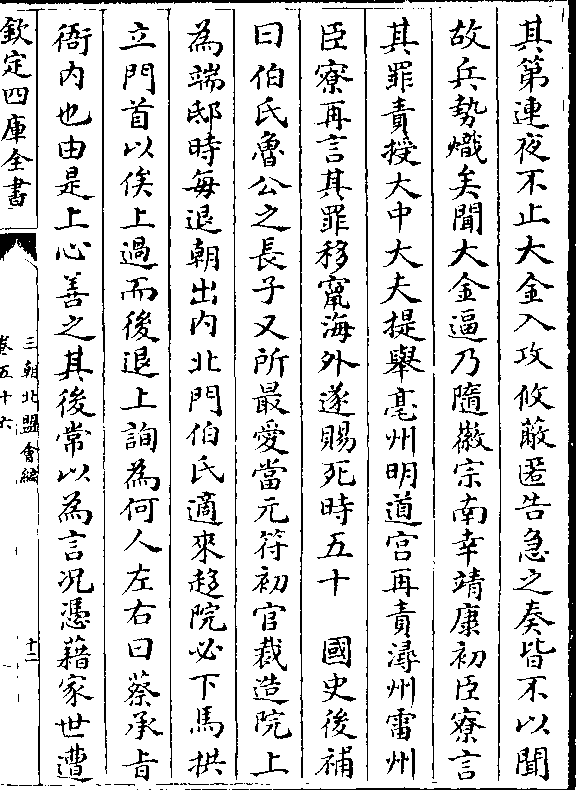 其第連夜不止大金入攻攸蔽匿告急之奏皆不以聞
故兵勢熾矣聞大金逼乃隨徽宗南幸靖康初臣寮言
其罪責授大中大夫提舉亳州明道宫再責潯州雷州
臣寮再言其罪移竄海外遂賜死時五十　國史後補
曰伯氏魯公之長子又所最愛當元符初官裁造院上
為端邸時每退朝出内北門伯氏適來趍院必下馬拱
立門首以俟上過而後退上詢為何人左右曰蔡承㫖
衙内也由是上心善之其後常以為言况憑藉家世遭
欽定四庫全書
三朝北盟會編
卷五十六
十二